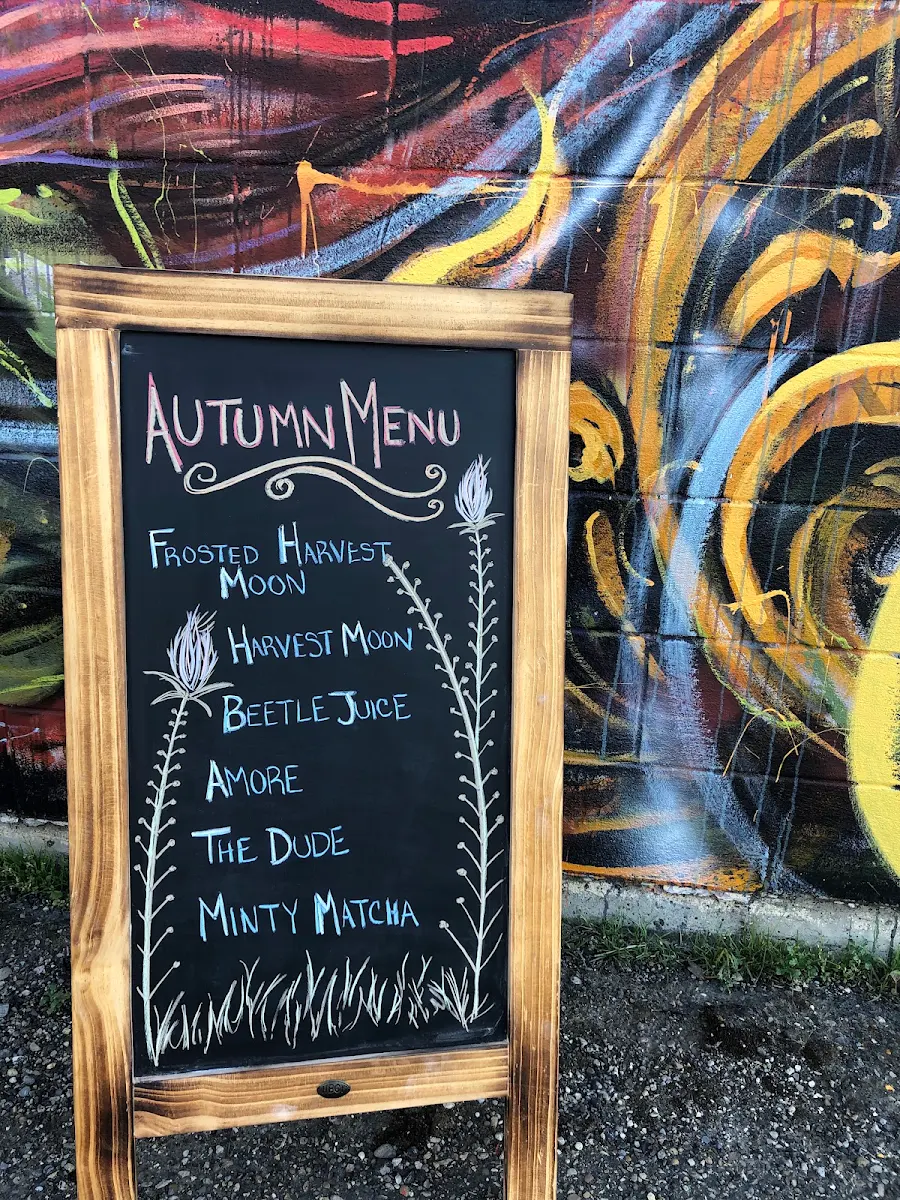 AUTUMN MENU
FROSTED HARVEST
MOON
HARVEST MOON
BEETLE JUICE
AMORE
THE DUDE
MINTY MATCHA